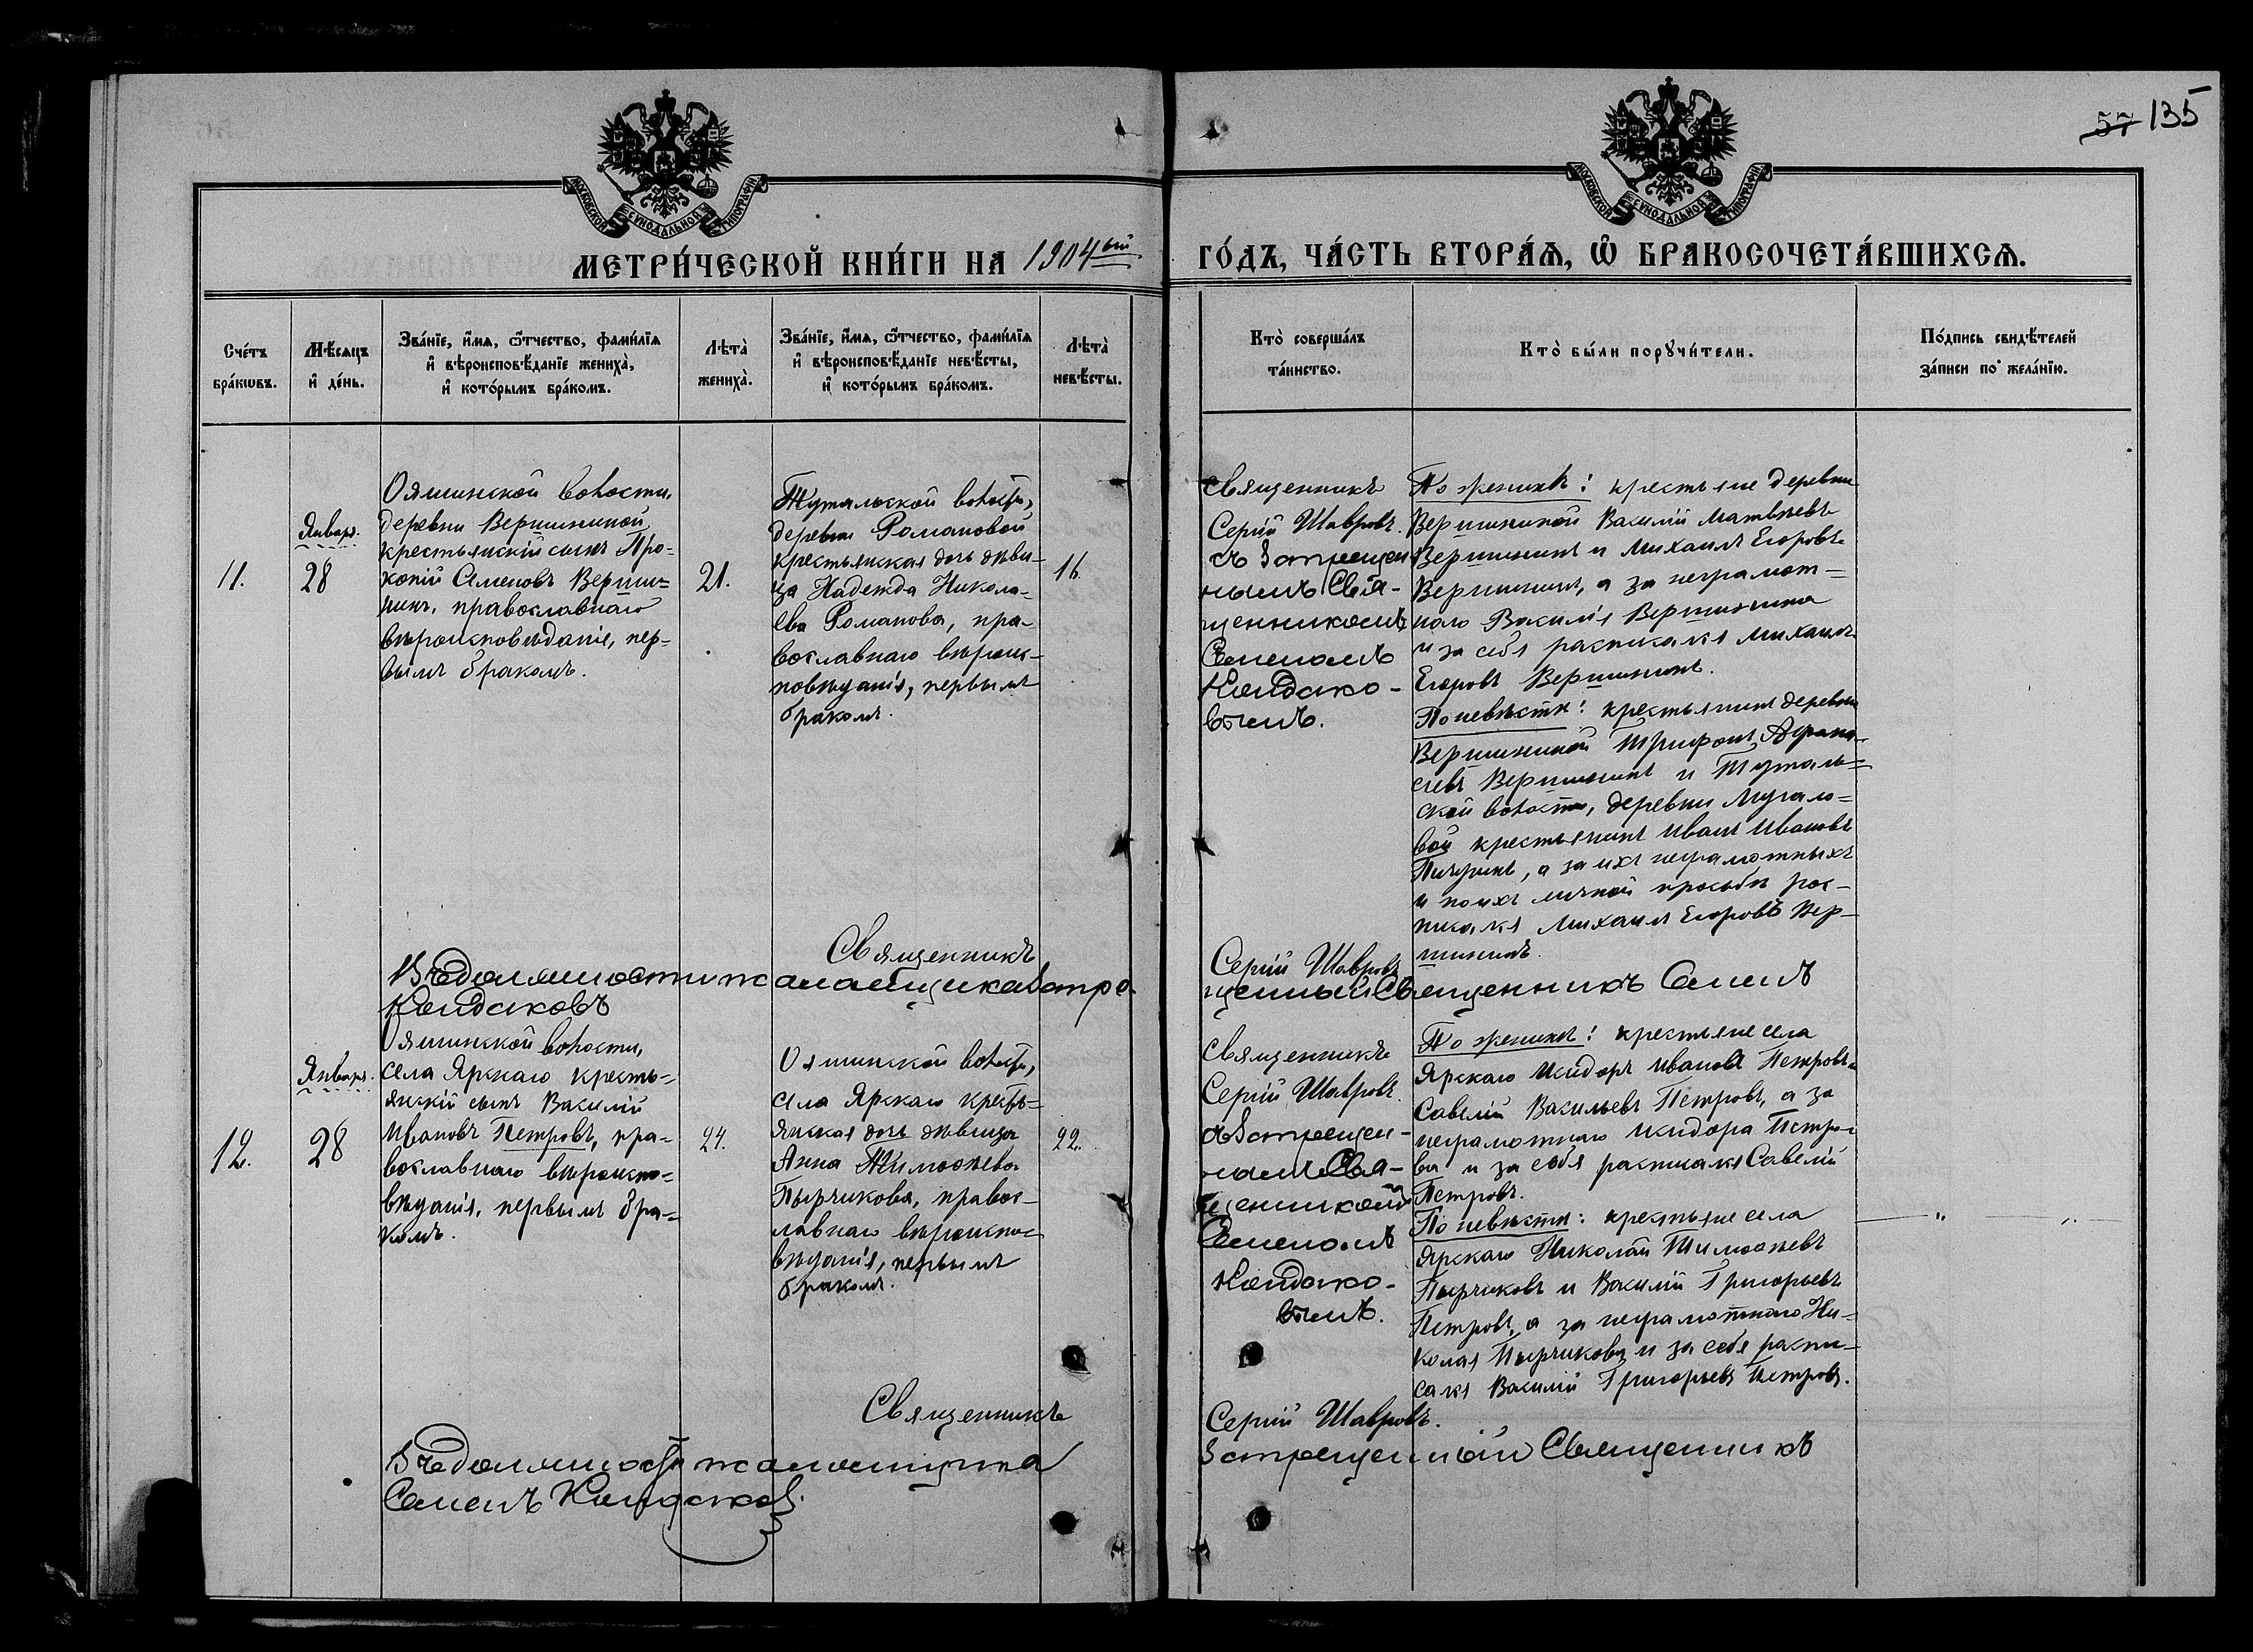 57 135
МОСКОВСКОЙ СѴНОДАЛЬНОЙ ТИПОГРАФІИ
МОСКОВСКОЙ СѴНОДАЛЬНОЙ ТИПОГРАФІИ
МЕТРИ́ЧЕСКОЙ КНИ́ГИ НА 1904ый ГО́ДЪ, ЧА́СТЬ ВТОРА́Ѧ, Ѡ҆ БРАКОСОЧЕТА́ВШИХСѦ.
Сче́тъ
бра́кѡвъ.
Мѣ́сѧцъ
и҆ де́нь.
Зва́нїе, и҆́мѧ, ѻ҆́тчество, фамѝлїѧ
и҆ вѣроисповѣ́данїе жениха̀,
и҆ кото́рымъ бра́комъ.
Лѣта̀
жениха̀.
Зва́нїе, и҆́мѧ, ѻ҆́тчество, фамѝлїѧ
и҆ вѣроисповѣ́данїе невѣ́сты,
и҆ кото́рымъ бра́комъ.
Лѣта̀
невѣ́сты.
Кто̀ соверша́лъ
та́инство.
Кто̀ бы́ли порꙋчи́тели.
По́дпись свидѣ́телей
за́писи по жела́нїю.
11.
Январ.
28
Ояшинской волости,
деревни Вершининой
крестьянскій сынъ Про-
копій Семеновъ Верши-
нинъ, православнаго
вѣроисповѣданіе, пер-
вымъ бракомъ.
21.
Тутальской волости,
деревни Романовой
крестьянская дочь дѣви-
ца Надежда Никола-
ева Романова, пра-
вославнаго вѣроис-
повѣданія, первымъ
бракомъ.
16.
Священникъ
Сергій Шавровъ.
съ Запрещен
нымъ Свя-
щенникомъ
Семеномъ
Кондако-
вымъ.
По женихѣ: крестьяне деревни
Вершининой Василій Матвѣевъ
Вершининъ и Михаилъ Егоровъ
Вершининъ, а за неграмот-
наго Василія Вершинина
и за себя расписался Михаилъ
Егоровъ Вершининъ.
По невѣстѣ: крестьянинъ деревни
Вершининой Трифонъ Афана-
сіевъ Вершининъ и Туталь-
ской волости, деревни Мугало-
вой крестьянинъ Иванъ Ивановъ
Пичугинъ, а за ихъ неграмотныхъ
и по ихъ личной просьбѣ рос-
писался Михаилъ Егоровъ Вер-
шининъ.
Священникъ Сергій Шавровъ
Въ должности псаломщика Запре-
щенный Священникъ Семенъ
Кондаковъ
12.
Январ.
28
Ояшинской волости,
села Ярскаго кресть-
янскій сынъ Василій
Ивановъ Петровъ, пра-
вославнаго вѣроиспо-
вѣданія, первымъ бра-
комъ.
24.
Ояшинской волости,
села Ярскаго кресть-
янская дочь дѣвица
Анна Тимоѳеева
Пырчикова, правос-
лавнаго вѣроиспо-
вѣданія, первымъ
бракомъ.
22.
Священникъ
Сергій Шавровъ.
съ Запрещен-
нымъ Свя-
щенникомъ
Семеномъ
Кондако-
вымъ.
По женихѣ: крестьяне села
Ярскаго Исидоръ Ивановъ Петровъ и
Савелій Васильевъ Петровъ, а за
неграмотнаго Исидора Петро-
ва и за себя расписался Савелій
Петровъ.
По невѣстѣ: крестьяне села
Ярскаго Николай Тимоѳеевъ
Пырчиковъ и Василій Григорьевъ
Петровъ, а за неграмотнаго Ни-
колая Пырчикова и за себя распи-
сался Василій Григорьевъ Петровъ.
Священникъ Сергій Шавровъ.
Въ должности псаломщика Запрещенный Священникъ
Семенъ Кондаковъ.